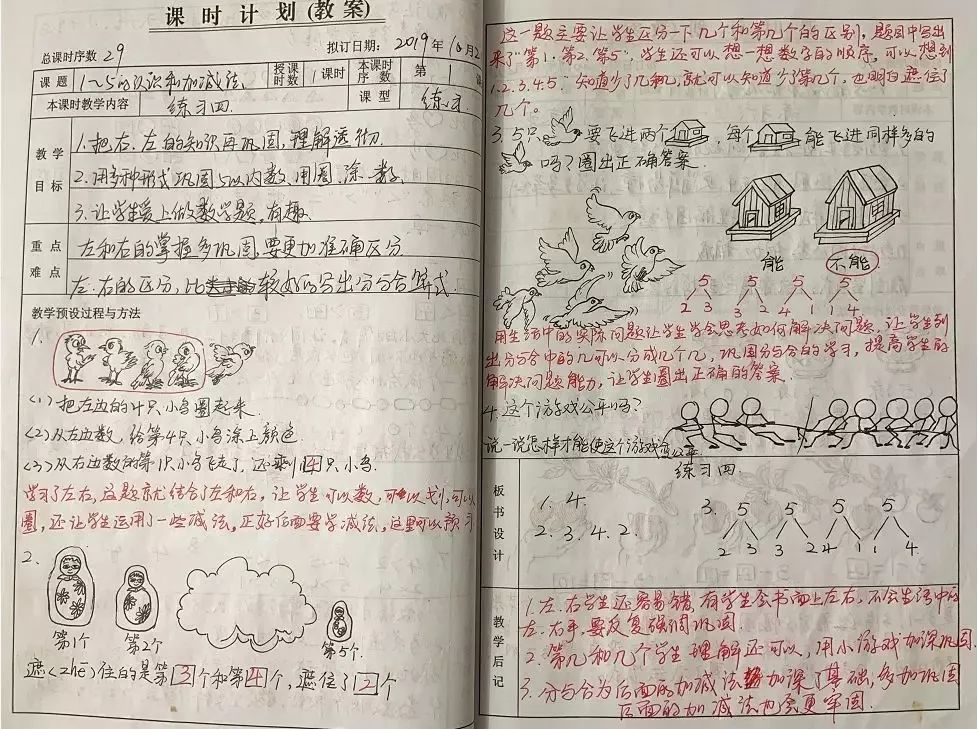 课时计划(教案)
总课时序数 29 拟订日期: 2019年10月2
课题 1~5的认识和加减法 授课时数 1课时 本课时序数 第1
本课时教学内容 练习四 课型 练习
教学目标
1.把右、左的知识再巩固,理解透彻.
2.用多种形式巩固5以内数,用圈、涂、数.
3.让学生爱上做数学题,有趣.
重点难点
左和右的掌握多巩固,要更加准确区分
左、右的区分,比较好的写出分与合算式.
教学预设过程与方法
1.
(1)把左边的4只小鸟圈起来.
(2)从左边数,给第4只小鸟涂上颜色.
(3)从右边数的第1只小鸟飞走了,还剩4只小鸟.
学习了左右,这题就结合了左和右,让学生可以数,可以划,可以
圈,还让学生运用了一些减法,正好后面要学减法,这里可以预习
2.
第1个 第2个 第5个.
遮(zhē)住的是第3个和第4个,遮住了2个
这一题主要让学生区分一下几个和第几个的区别,题目中写出
来了"第1、第2、第5",学生还可以想一想数字的顺序,可以想到
1.2.3.4.5.知道少了几和几,就可以知道少了第几个,也明白遮住了
几个。
3.5只 要飞进两个 ,每个 能飞进同样多的
吗?圈出正确答案.
能 不能
5 5 5 5
2 3 3 2 4 1 1 4
用生活中的实际问题让学生学会思考如何解决问题.让学生列
出分与合中的几可以分成几个几,巩固分与合的学习,提高学生的
解决问题能力,让学生圈出正确的答案.
4.这个游戏公平吗?
说一说怎样才能使这个游戏公平
板书设计
练习四
1.4.
2.3.4.2.
3. 5 5 5 5
2 3 3 2 4 1 1 4.
教学后记
1.左、右学生还容易错,有学生会书面上左右,不会生活中的
左、右手,要反复强调巩固.
2.第几和几个学生理解还可以,用小游戏加深巩固.
3.分与合为后面的加减法加深了基础,多加巩固
后面的加减法也会更牢固.